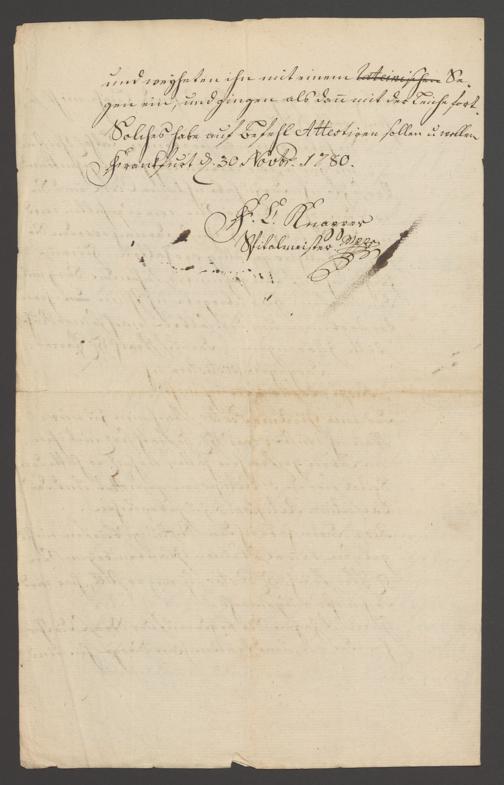 und weyheten ihn mit einem lateinischen Se-
gen ein, und gingen als dan̄ mit der Leiche fort.
Solches habe auf Befehl Attestiren sollen u wollen
Frankfurt d. 30 Novbr. 1780.
Spitalmeister